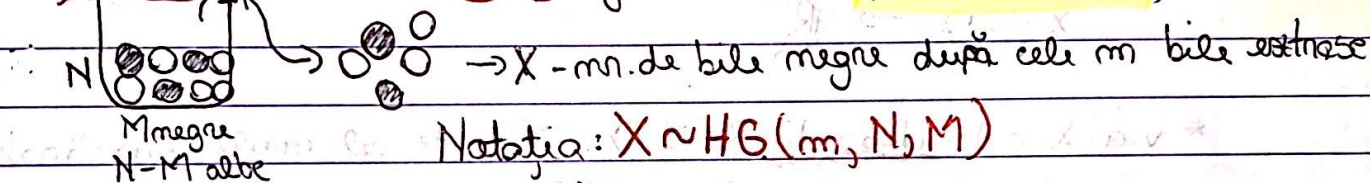 N → X - nr. de bile negre după cele n bile extrase
M negre
N-M albe
Notația: X ~ HG(n, N, M)